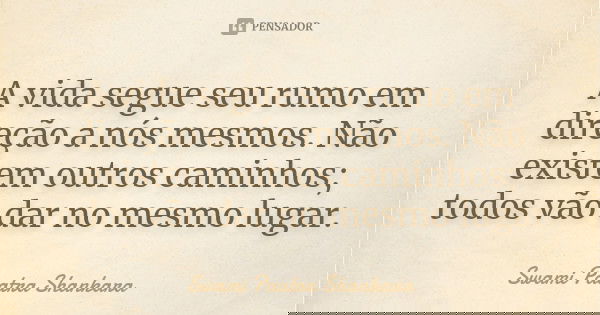 PENSADOR
A vida segue seu rumo em
direção a nós mesmos. Não
existem outros caminhos;
todos vão dar no mesmo lugar.
Swami Paatra Shankara